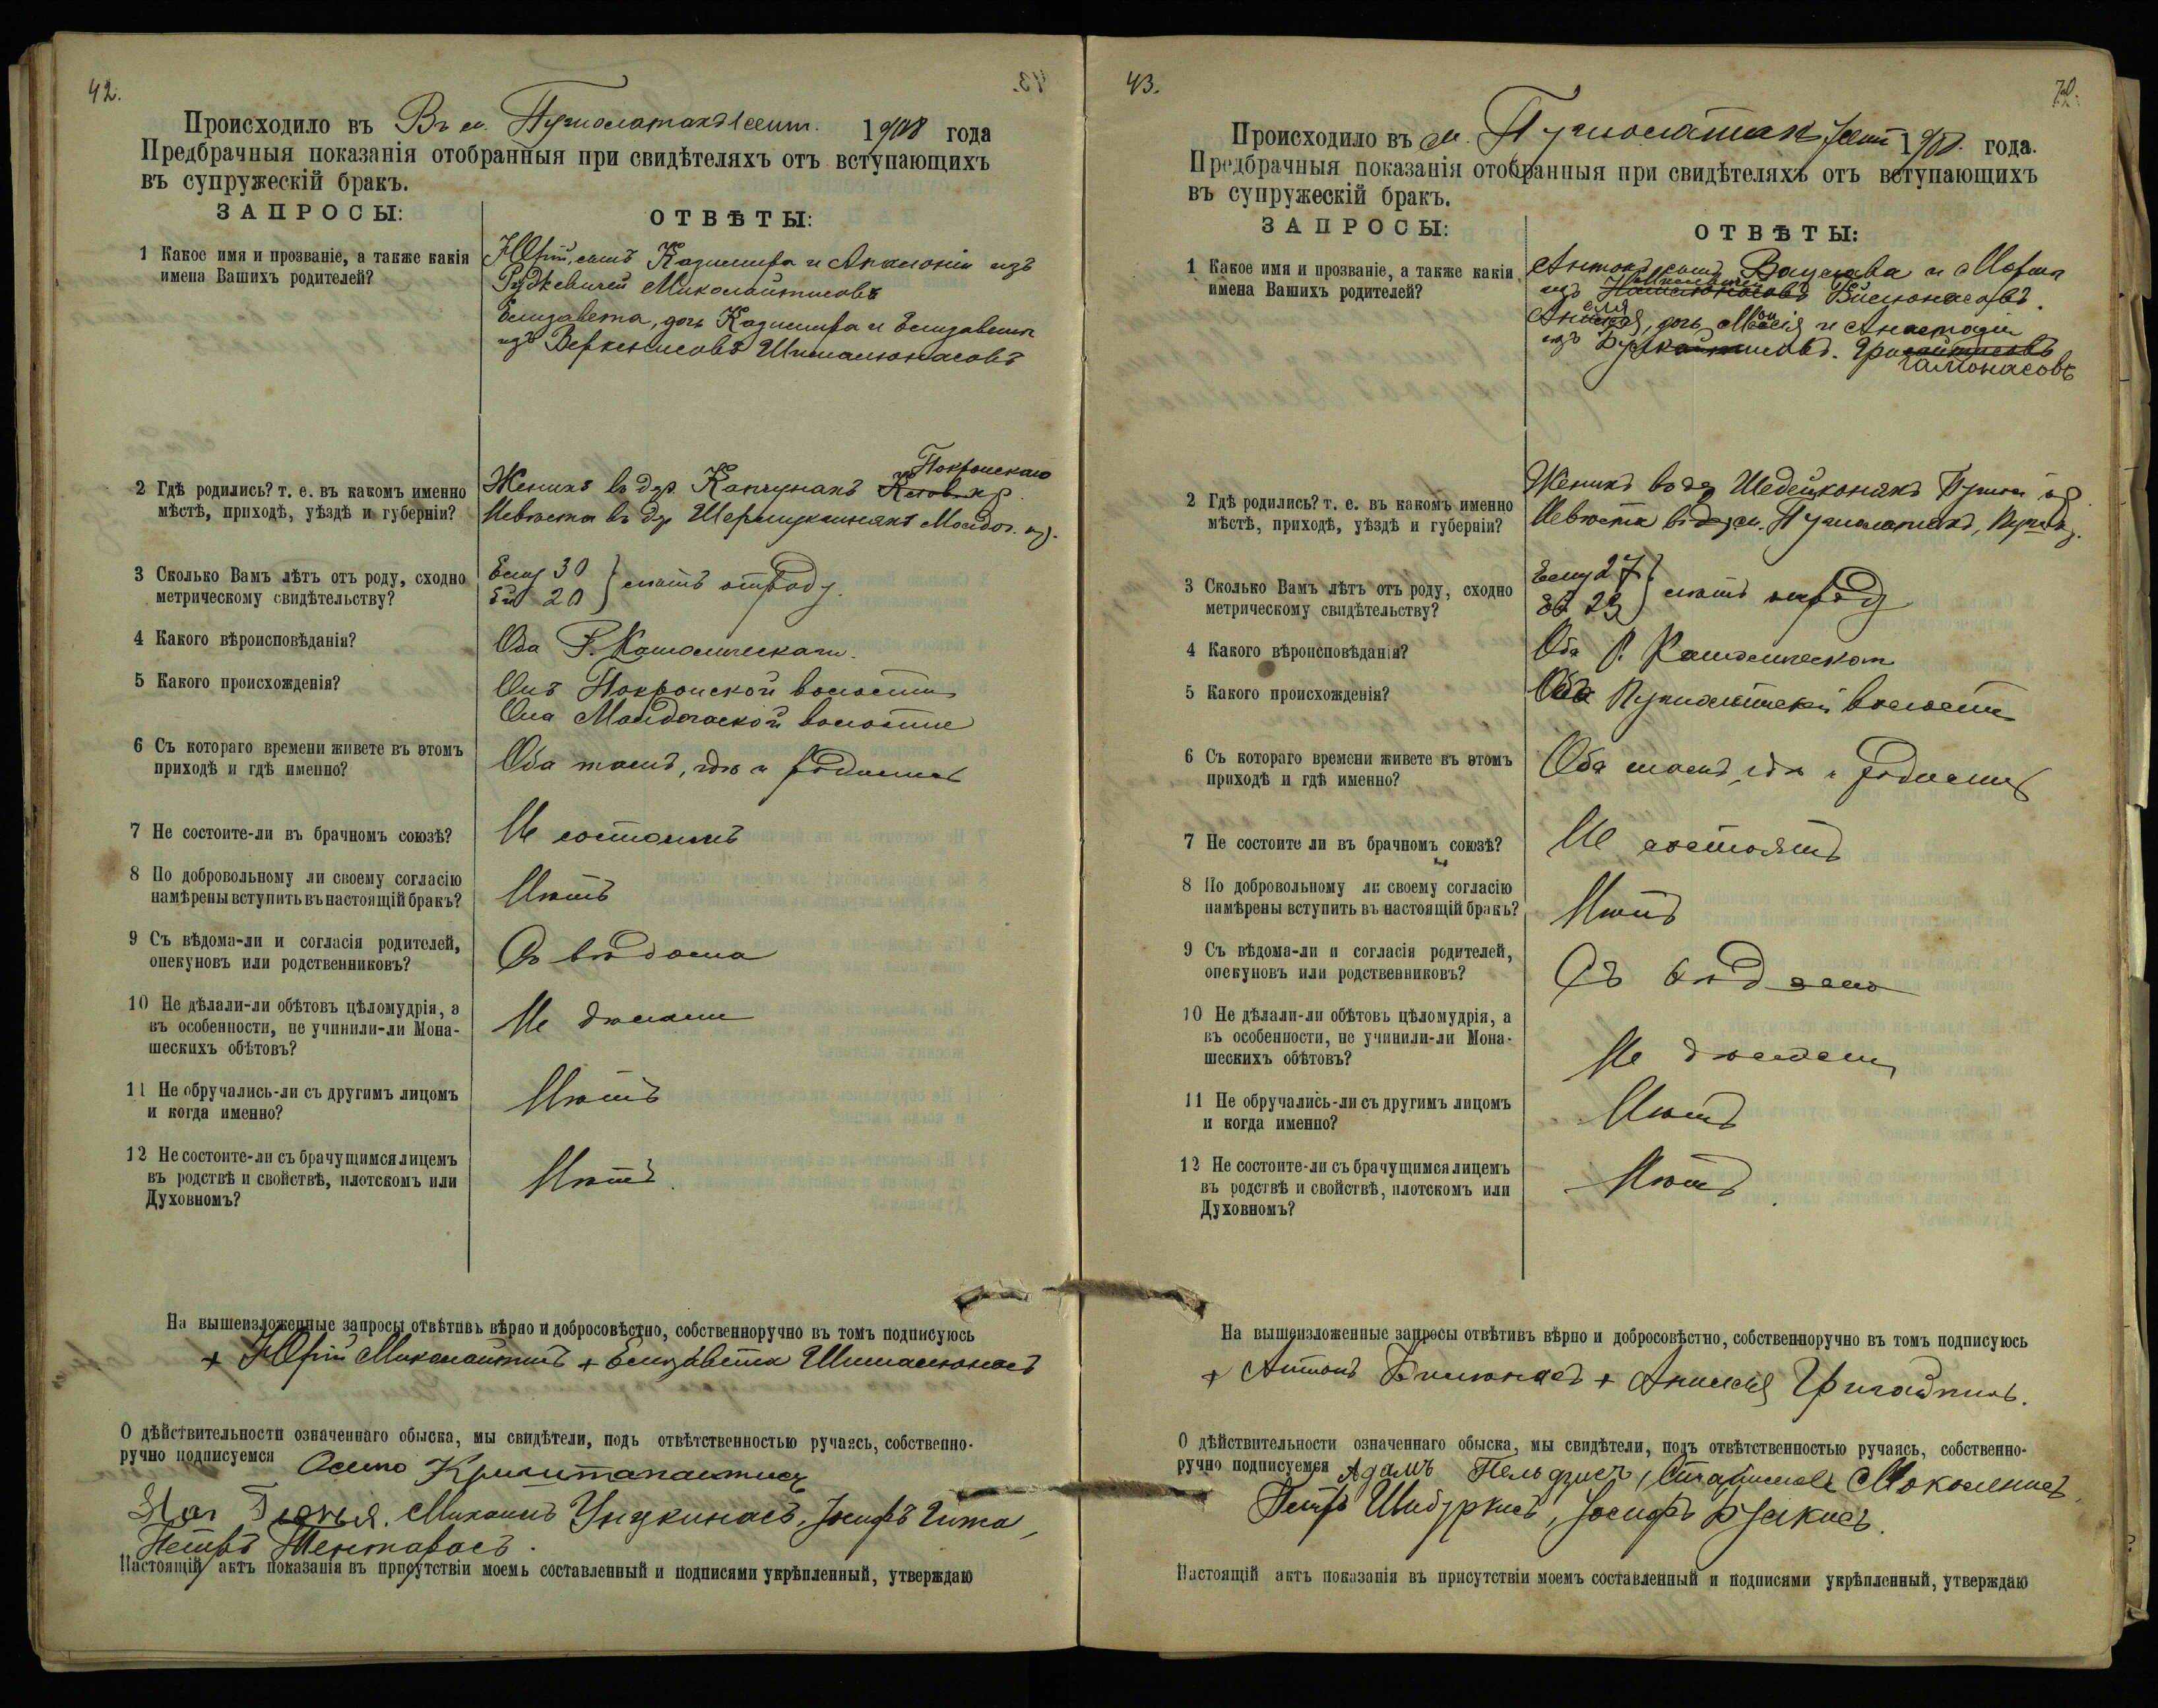 42.
Происходило въ Въ м. 1908 года
Предбрачныя показанія отобранныя при свидѣтеляхъ отъ вступающихъ
въ супружескій бракъ.
ЗАПРОСЫ:
ОТВѢТЫ:
1 Какое имя и прозваніе, а также какія
имена Вашихъ родителей?
Юрій, сынъ Казимира и Аполоніи изъ
Рудкевичей Миколайтисовъ
Елизавета, дочь Казимира и Елизаветы
изъ Веркелисовъ Шималюнасовъ
2 Гдѣ родились? т. е. въ какомъ именно
мѣстѣ, приходѣ, уѣздѣ и губерніи?
Покройскаго
Женихъ въ дер.
Невѣста въ дер.
3 Сколько Вамъ лѣтъ отъ роду, сходно
метрическому свидѣтельству?
Ему 30
Ей 20 } лѣтъ отъ роду.
4 Какого вѣроисповѣданія?
Оба Р. Католическаго.
5 Какого происхожденія?
Онъ Покройской волости
Она волости
6 Съ котораго времени живете въ этомъ
приходѣ и гдѣ именно?
Оба тамъ, гдѣ и родились
7 Не состоите-ли въ брачномъ союзѣ?
Не состоятъ
8 По добровольному ли своему согласію
намѣрены вступить въ настоящій бракъ?
Нѣтъ
9 Съ вѣдома-ли и согласія родителей,
опекуновъ или родственниковъ?
Съ вѣдома
10 Не дѣлали-ли обѣтовъ цѣломудрія, а
въ особенности, не учинили-ли Мона-
шескихъ обѣтовъ?
Не дѣлали
11 Не обручались-ли съ другимъ лицомъ
и когда именно?
Нѣтъ
12 Не состоите-ли съ брачущимся лицемъ
въ родствѣ и свойствѣ, плотскомъ или
Духовномъ?
Нѣтъ.
На вышеизложенные запросы отвѣтивъ вѣрно и добросовѣстно, собственноручно въ томъ подписуюсь
+ Юрій Миколайтисъ + Елизавета Шималюнасъ
О дѣйствительности означеннаго обыска, мы свидѣтели, подъ отвѣтственностью ручаясь, собственно-
ручно подписуемся
Михаилъ Іосифъ
Петръ
Настоящій актъ показанія въ присутствіи моемъ составленный и подписями укрѣпленный, утверждаю
43.
70.
Происходило въ м. 1908 года.
Предбрачныя показанія отобранныя при свидѣтеляхъ отъ вступающихъ
въ супружескій бракъ.
ЗАПРОСЫ:
ОТВѢТЫ:
1 Какое имя и прозваніе, а также какія
имена Вашихъ родителей?
Антонъ сынъ Вацлава и Маріи
изъ
дочь и Анастасіи
изъ
2 Гдѣ родились? т. е. въ какомъ именно
мѣстѣ, приходѣ, уѣздѣ и губерніи?
Женихъ въ дер
Невѣста въ
3 Сколько Вамъ лѣтъ отъ роду, сходно
метрическому свидѣтельству?
Ему 27
Ей 23 } лѣтъ отъ роду
4 Какого вѣроисповѣданія?
Оба Р. Католическаго
5 Какого происхожденія?
Оба волости
6 Съ котораго времени живете въ этомъ
приходѣ и гдѣ именно?
Оба тамъ, гдѣ и родились
7 Не состоите ли въ брачномъ союзѣ?
Не состоятъ
8 По добровольному ли своему согласію
намѣрены вступить въ настоящій бракъ?
Нѣтъ
9 Съ вѣдома-ли и согласія родителей,
опекуновъ или родственниковъ?
Съ вѣдома
10 Не дѣлали-ли обѣтовъ цѣломудрія, а
въ особенности, не учинили-ли Мона-
шескихъ обѣтовъ?
Не дѣлали
11 Не обручались-ли съ другимъ лицомъ
и когда именно?
Нѣтъ
12 Не состоите-ли съ брачущимся лицемъ
въ родствѣ и свойствѣ, плотскомъ или
Духовномъ?
Нѣтъ.
На вышеизложенные запросы отвѣтивъ вѣрно и добросовѣстно, собственноручно въ томъ подписуюсь
+ Антонъ +
О дѣйствительности означеннаго обыска, мы свидѣтели, подъ отвѣтственностью ручаясь, собственно-
ручно подписуемся Адамъ
Петръ Іосифъ
Настоящій актъ показанія въ присутствіи моемъ составленный и подписями укрѣпленный, утверждаю